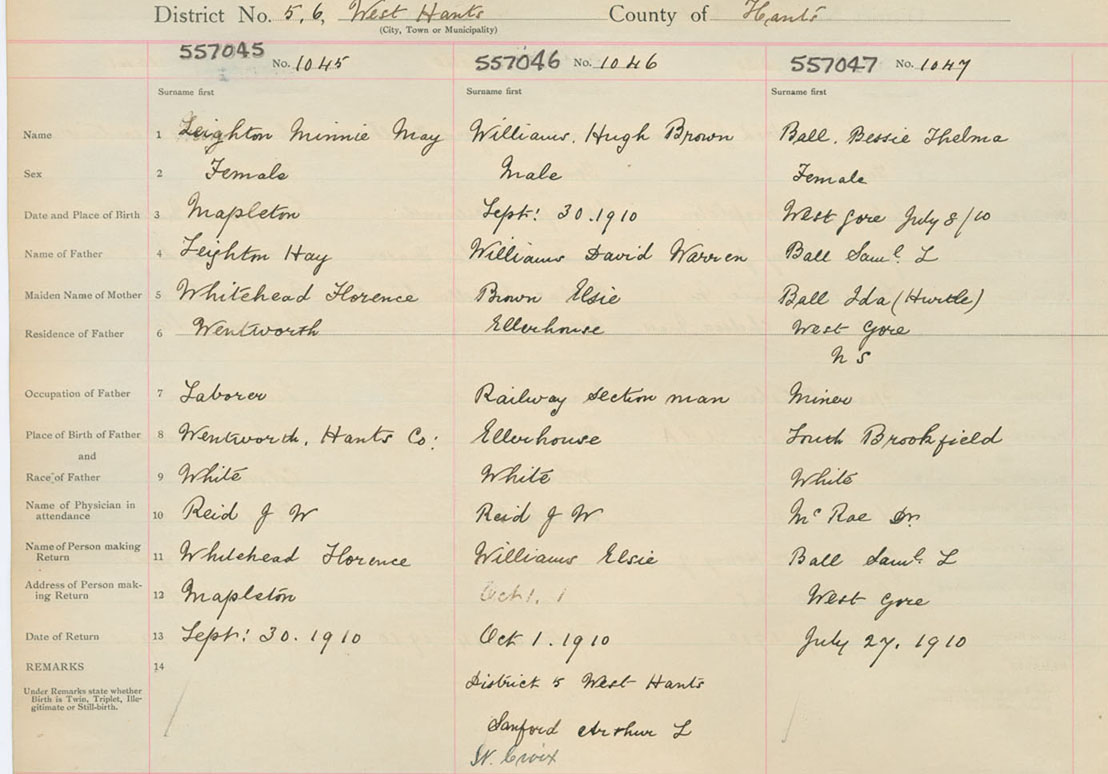 District No. 5, 6, West Hants County of Hants
(City, Town or Municipality)
557045 No. 1045 557046 No. 1046 557047 No. 1047
Surname first Surname first Surname first
Name 1 Leighton Minnie May Williams, Hugh Brown Ball, Bessie Thelma
Sex 2 Female Male Female
Date and Place of Birth 3 Mapleton Sept: 30. 1910 West Gore July 8/10
Name of Father 4 Leighton Hay Williams David Warren Ball Saml. L
Maiden Name of Mother 5 Whitehead Florence Brown Elsie Ball Ida (Hurtle)
Residence of Father 6 Wentworth Ellerhouse West Gore
N S
Occupation of Father 7 Laborer Railway Section man Miner
Place of Birth of Father 8 Wentworth, Hants Co: Ellerhouse South Brookfield
and
Race of Father 9 White White White
Name of Physician in
attendance 10 Reid J W Reid J W McRae Dr
Name of Person making
Return 11 Whitehead Florence Williams Elsie Ball Saml. L
Address of Person mak-
ing Return 12 Mapleton Oct 1. 1 West Gore
Date of Return 13 Sept: 30. 1910 Oct 1. 1910 July 27, 1910
REMARKS 14
Under Remarks state whether
Birth is Twin, Triplet, Ille-
gitimate or Still-birth.
District 5 West Hants
Sanford Arthur L
St. Croix